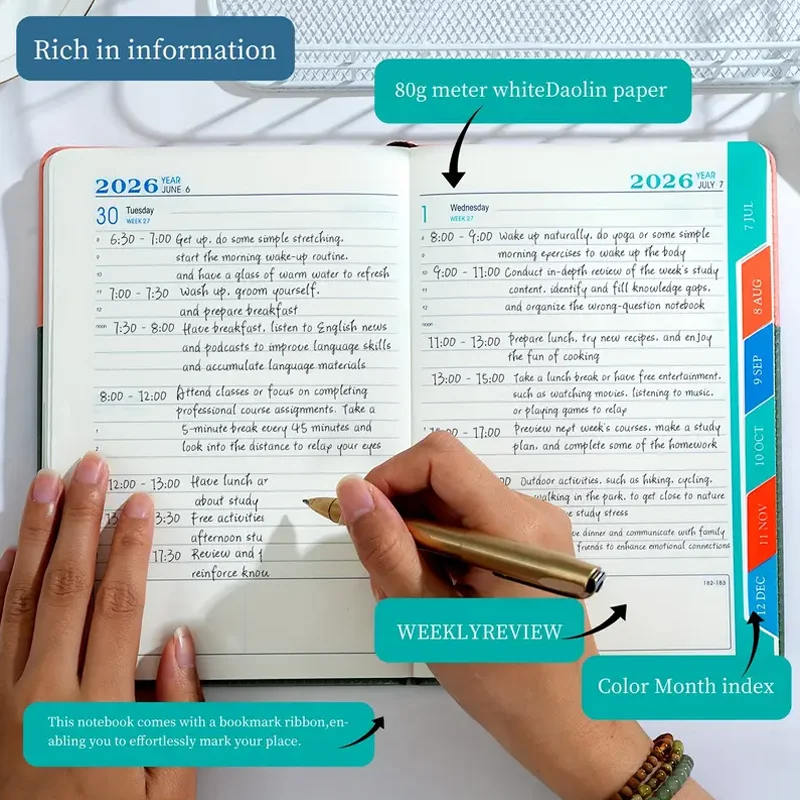 Rich in information
80g meter whiteDaolin paper
2026 YEAR
JUNE 6
30 Tuesday
WEEK 27
8 6:30 - 7:00 Get up, do some simple stretching,
9 start the morning wake-up routine,
10 and have a glass of warm water to refresh
11 7:00 - 7:30 Wash up, groom yourself,
12 and prepare breakfast
noon 7:30 - 8:00 Have breakfast, listen to English news
and podcasts to improve language skills
and accumulate language materials
8:00 - 12:00 Attend classes or focus on completing
professional course assignments. Take a
1 5-minute break every 45 minutes and
2 look into the distance to relap your eyes
12:00 - 13:00 Have lunch
about study
3:30 Free activities
afternoon
17:30 Review and
reinforce
2026 YEAR
JULY 7
1 Wednesday
WEEK 27
8 8:00 - 9:00 Wake up naturally, do yoga or some simple
9 morning epercises to wake up the body
10 9:00 - 11:00 Conduct in-depth review of the week's study
11 content, identify and fill knowledge gaps,
12 and organize the wrong-question notebook
noon
11:00 - 13:00 Prepare lunch, try new recipes, and enjoy
the fun of cooking
13:00 - 15:00 Take a lunch break or have free entertainment,
such as watching movies, listening to music,
or playing games to relap
- 17:00 Preview nept week's courses, make a study
plan, and complete some of the homework
Outdoor activities, such as hiking, cycling,
walking in the park, to get close to nature
study stress
dinner and communicate with family
friends to enhance emotional connections
182-183
7 JUL
8 AUG
9 SEP
10 OCT
11 NOV
12 DEC
WEEKLYREVIEW
Color Month index
This notebook comes with a bookmark ribbon,en-
abling you to effortlessly mark your place.